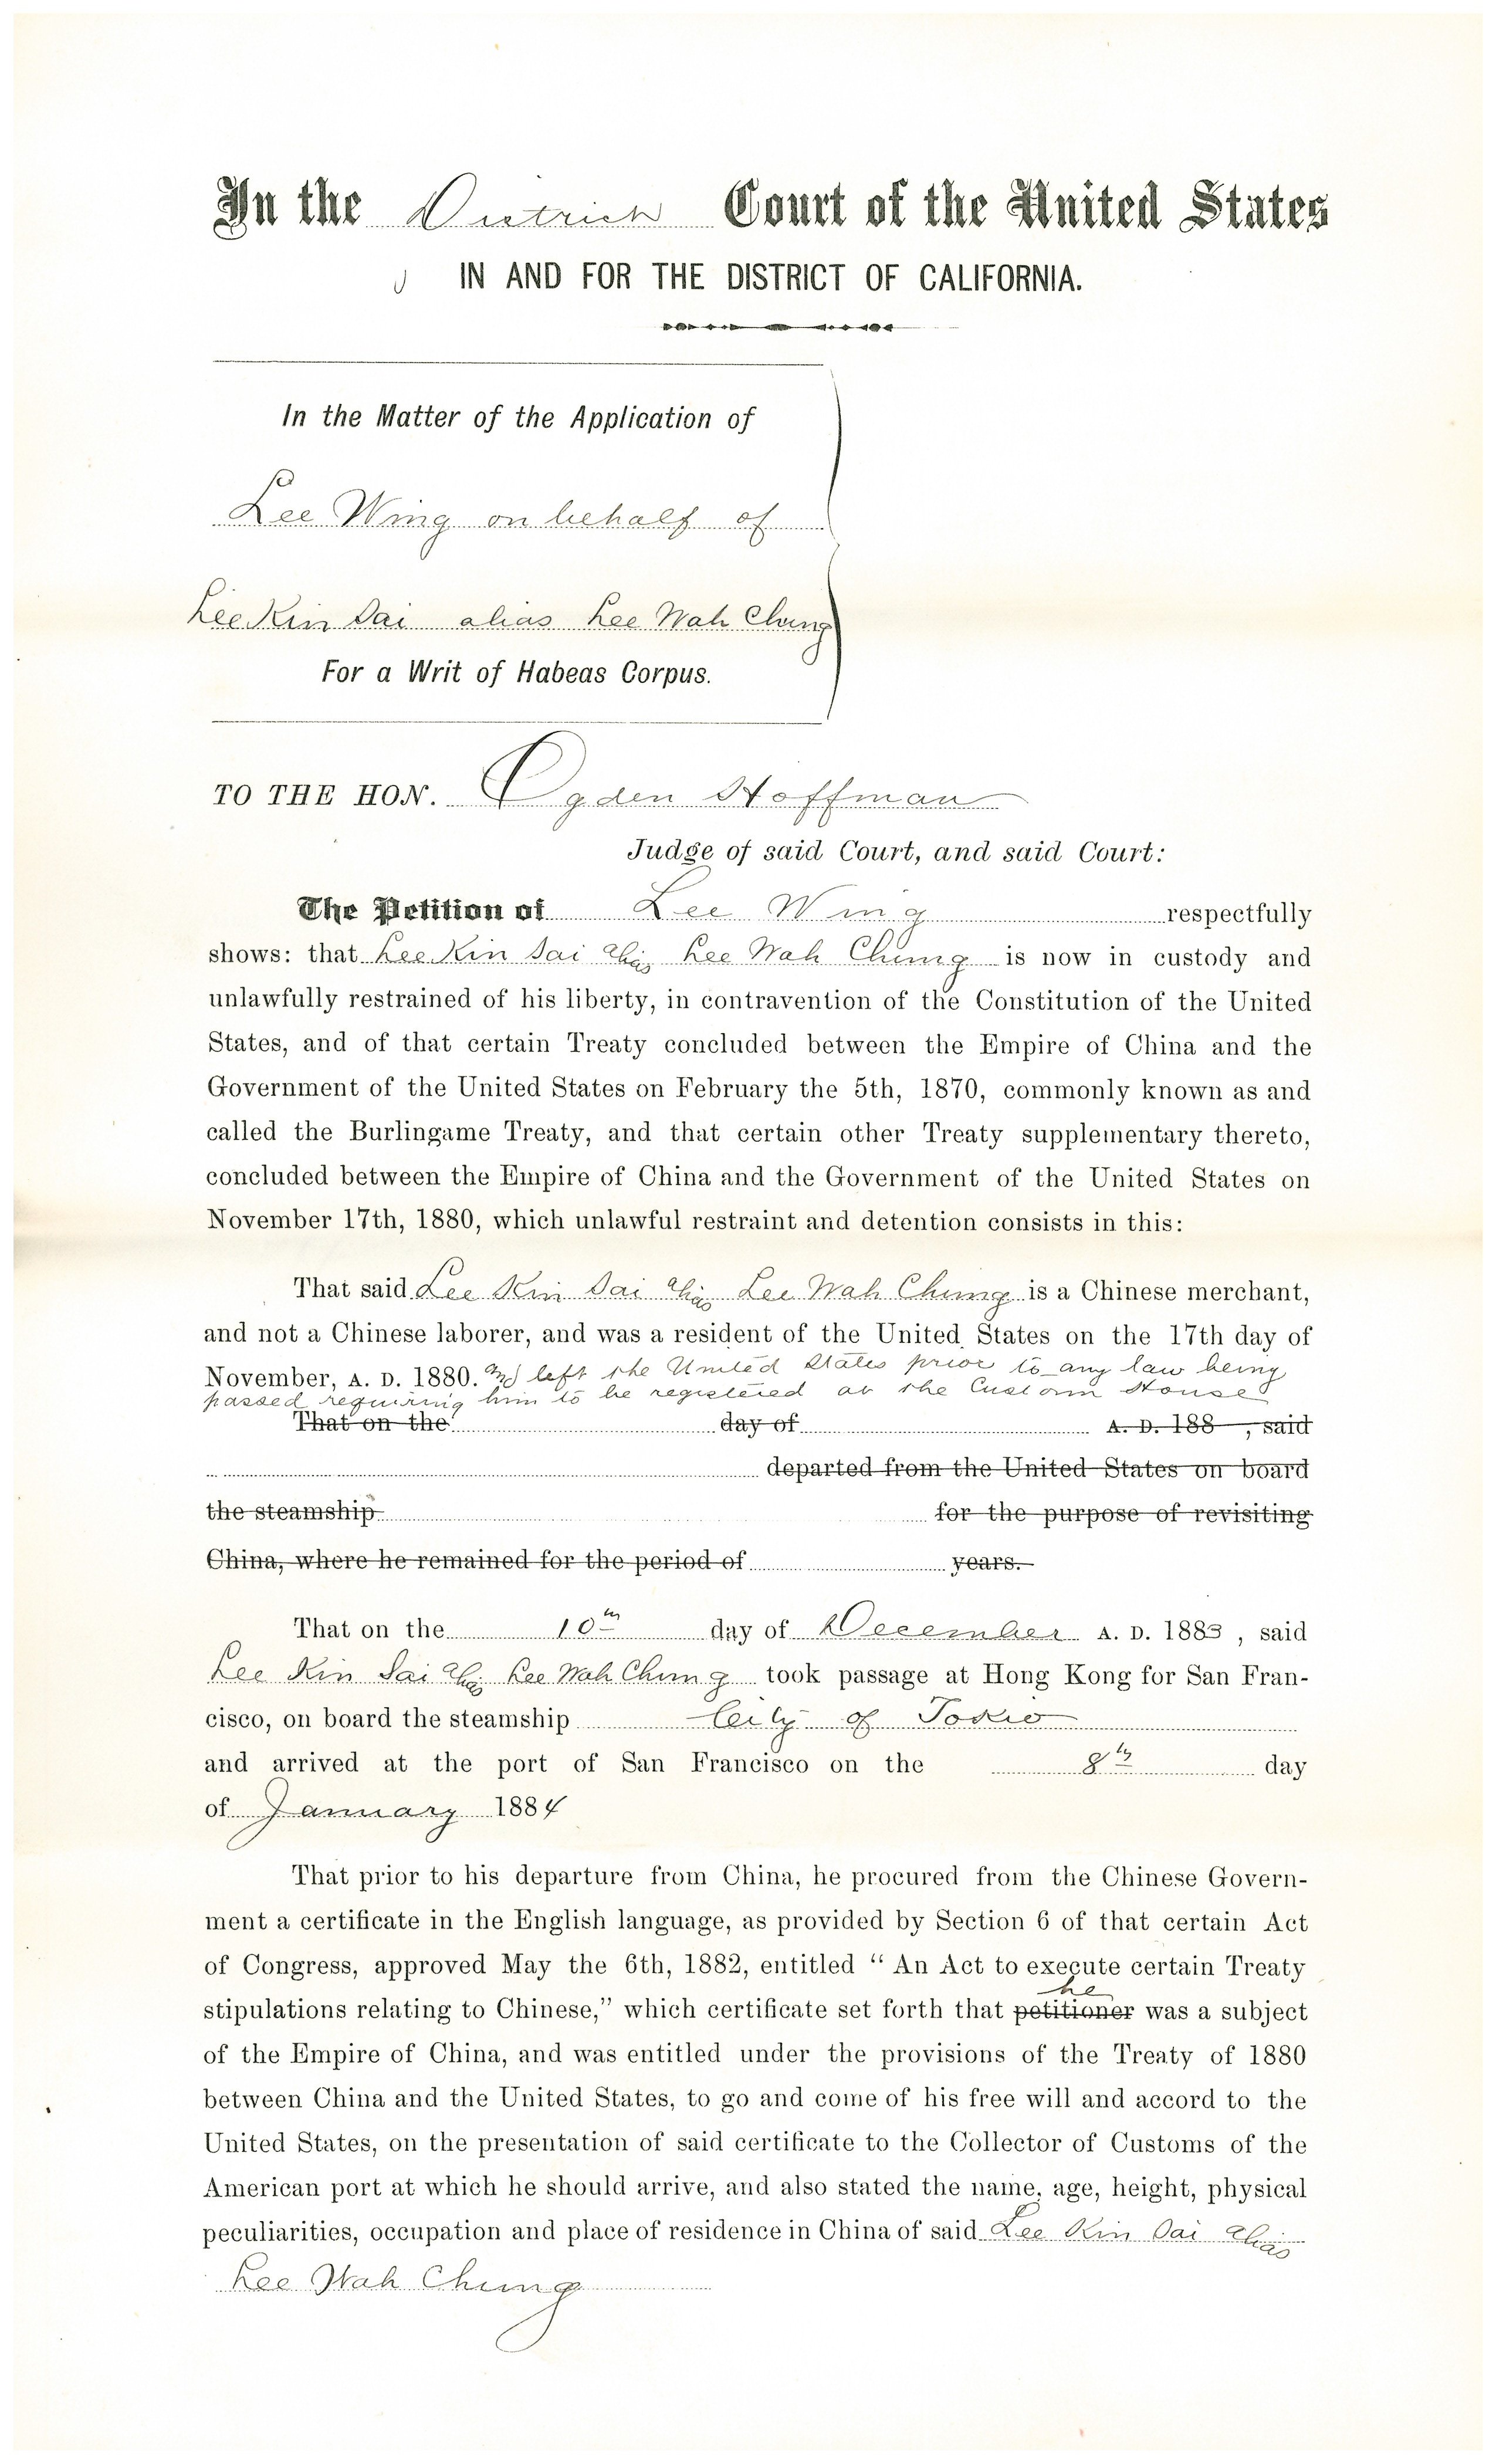 In the District Court of the United States
IN AND FOR THE DISTRICT OF CALIFORNIA.
In the Matter of the Application of
Lee Wing on behalf of
Lee Kin Sai alias Lee Wah Chung
For a Writ of Habeas Corpus.
TO THE HON. Ogden Hoffman
Judge of said Court, and said Court:
The Petition of Lee Wing respectfully
shows: that Lee Kin Sai alias Lee Wah Chung is now in custody and
unlawfully restrained of his liberty, in contravention of the Constitution of the United
States, and of that certain Treaty concluded between the Empire of China and the
Government of the United States on February the 5th, 1870, commonly known as and
called the Burlingame Treaty, and that certain other Treaty supplementary thereto,
concluded between the Empire of China and the Government of the United States on
November 17th, 1880, which unlawful restraint and detention consists in this:
That said Lee Kin Sai alias Lee Wah Chung is a Chinese merchant,
and not a Chinese laborer, and was a resident of the United States on the 17th day of
November, A. D. 1880. and left the United States prior to any law being
passed requiring him to be registered at the Custom House
That on the day of A. D. 188 , said
departed from the United States on board
the steamship for the purpose of revisiting
China, where he remained for the period of years.
That on the 10th day of December A. D. 1883, said
Lee Kin Sai alias Lee Wah Chung took passage at Hong Kong for San Fran-
cisco, on board the steamship City of Tokio
and arrived at the port of San Francisco on the 8th day
of January 1884
That prior to his departure from China, he procured from the Chinese Govern-
ment a certificate in the English language, as provided by Section 6 of that certain Act
of Congress, approved May the 6th, 1882, entitled “ An Act to execute certain Treaty
he
stipulations relating to Chinese,” which certificate set forth that petitioner was a subject
of the Empire of China, and was entitled under the provisions of the Treaty of 1880
between China and the United States, to go and come of his free will and accord to the
United States, on the presentation of said certificate to the Collector of Customs of the
American port at which he should arrive, and also stated the name, age, height, physical
peculiarities, occupation and place of residence in China of said Lee Kin Sai alias
Lee Wah Chung